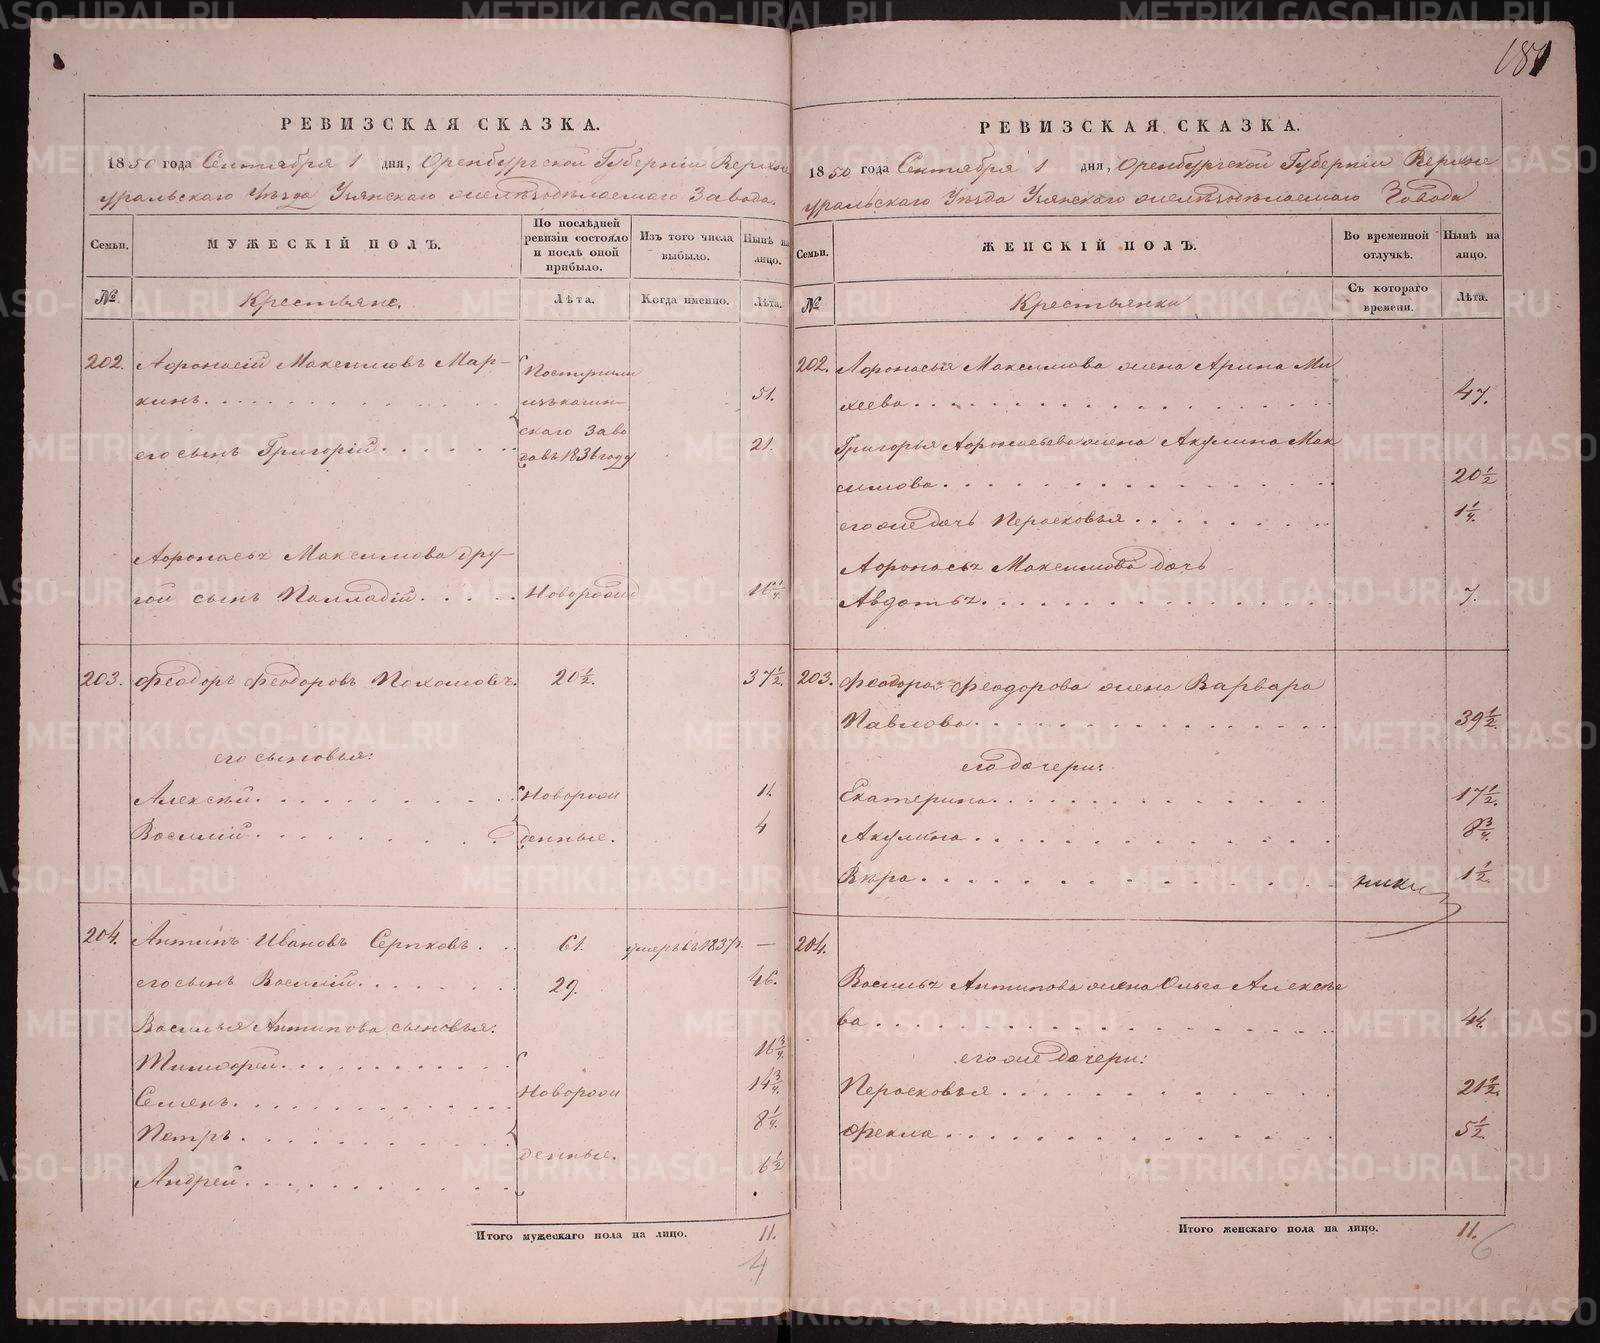 181
РЕВИЗСКАЯ СКАЗКА.
1850 года Сентября 1 дня, Оренбургской Губерніи Верхне
уральскаго Уѣзда Узянскаго желѣзодѣлаемаго Завода.
Семьи. МУЖЕСКІЙ ПОЛЪ. По послѣдней ревизіи состояло и послѣ оной прибыло. Изъ того числа выбыло. Нынѣ на лицо.
№ Крестьяне. Лѣта. Когда именно. Лѣта.
202. Афонасій Максимовъ Мар-
кинъ. 51.
Поступили
изъ кагин-
скаго Заво
довъ 1836 году
его сынъ Григорій. 21.
Афонасья Максимова дру-
гой сынъ Палладій. Новорожд 16 1/4.
203. Феодоръ Феодоровъ Пахомовъ. 20 1/2. 37 1/2.
его сыновья:
Алексѣй. Новорож 11.
Василій. денные. 4
204. Антипъ Ивановъ Серпковъ. 61. умеръ въ 1837 г. —
его сынъ Василій. 29. 46.
Василья Антипова сыновья:
Тимофей. 16 3/4.
Семенъ. Новорож 14 3/4.
Петръ. 8 1/4.
денные.
Андрей. 6 1/2
Итого мужескаго пола на лицо. 11.
4
РЕВИЗСКАЯ СКАЗКА.
1850 года Сентября 1 дня, Оренбургской Губерніи Верхне
уральскаго Уѣзда Узянскаго желѣзодѣлаемаго Завода
Семьи. ЖЕНСКІЙ ПОЛЪ. Во временной отлучкѣ. Нынѣ на лицо.
№ Крестьянки Съ котораго времени. Лѣта.
202. Афонасья Максимова жена Арина Ми
хеева. 47.
Григорья Афонасьева жена Акулина Мак
симова. 20 1/2
его же дочь Перасковья. 1 1/4.
Афонасья Максимова дочь
Авдотья. 7.
203. Феодора Феодорова жена Варвара
Павлова. 39 1/2.
его дочери:
Екатерина. 17 1/2.
Акулина. 8 3/4.
Вѣра. 1 1/2.
ники
204.
Василья Антипова жена Ольга Алексѣе
ва. 44.
его же дочери:
Перасковья. 21 1/2.
Фекла. 5 1/2
Итого женскаго пола на лицо. 11.
6
METRIKI.GASO-URAL.RU